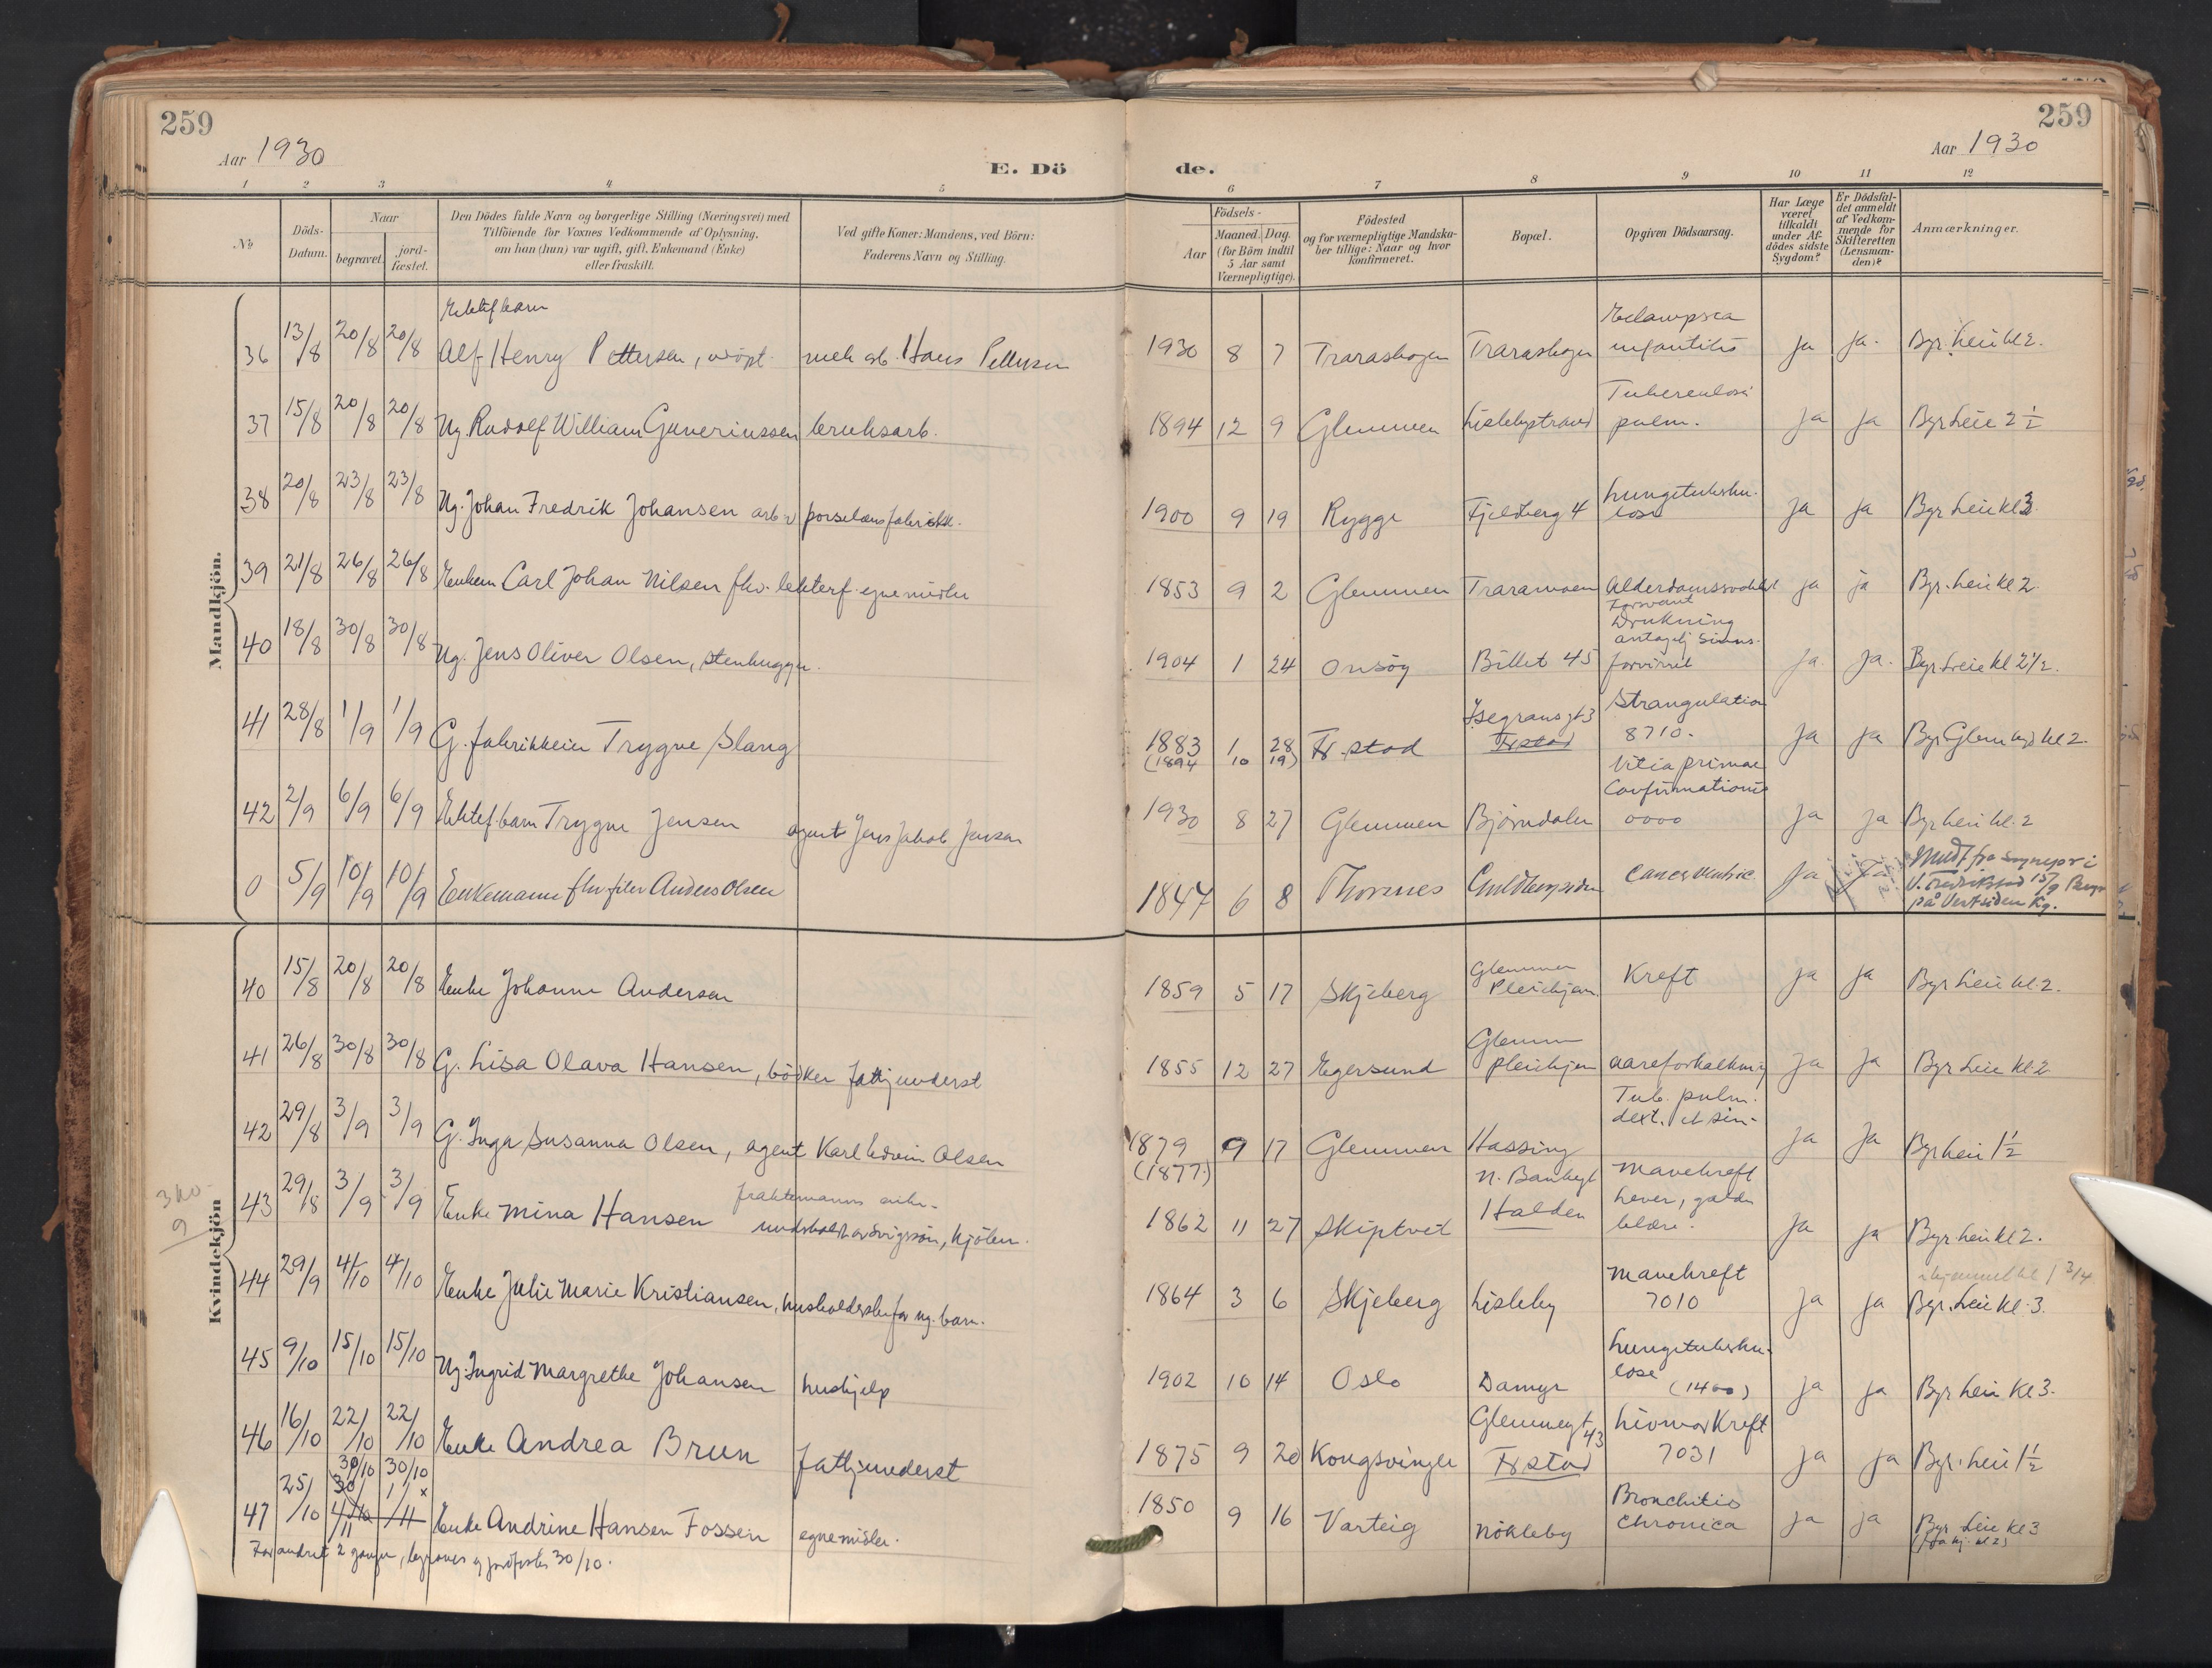 259
Aar 1930
E. Dö
de.
259
Aar 1930
1 2 3 4 5 6 7 8 9 10 11 12
No
Döds-Datum.
Naar
begravet.
jord-fæstet.
Den Dödes fulde Navn og borgerlige Stilling (Næringsvei) med
Tilföiende for Voxnes Vedkommende af Oplysning,
om han (hun) var ugift, gift, Enkemand (Enke)
eller fraskilt.
Ved gifte Koner: Mandens, ved Börn:
Faderens Navn og Stilling.
Födsels-
Aar
Maaned. Dag.
(for Börn indtil
5 Aar samt
Værnepligtige).
Födested
og for værnepligtige Mandska-
ber tillige: Naar og hvor
konfirmeret.
Bopæl.
Opgiven Dödsaarsag.
Har Læge
været
tilkaldt
under Af-
dödes sidste
Sygdom?
Er Dödsfal-
det anmeldt
af Vedkom-
mende for
Skifteretten
(Lensman-
den)?
Anmærkninger.
Mandkjön.
Ektef barn
36 13/8 20/8 20/8 Alf Henry Pettersen, udöpt. mek arb. Hans Pettersen 1930 8 7 Traraskogen Traraskogen Eclampsia infantilis ja ja. Byr. Leie kl 2.
37 15/8 20/8 20/8 Ug. Rudolf William Guneriussen bruksarb. 1894 12 9 Glemmen Lislebystrand Tuberculosi pulm. ja ja Byr Leie 2 1/2
38 20/8 23/8 23/8 Ug. Johan Fredrik Johansen arb. v porselænsfabrikk. 1900 9 19 Rygge Fjeldberg 4 Lungetuberku-lose ja ja Byr Leie kl 3
39 21/8 26/8 26/8 Enkem Carl Johan Nilsen fhv. lekterf. egne midler 1853 9 2 Glemmen Traramoen Alderdomssvakhet ja ja Byr. Leie kl 2
40 18/8 30/8 30/8 Ug. Jens Oliver Olsen, stenhugger. 1904 1 24 Onsöy Billet 45 Forsvant Drukning antagelj sinns-forvirret ja ja. Byr Leie kl 2 1/2.
41 28/8 1/9 1/9 G. fabrikkeier Trygve Slang 1883 (1894 1 10 28 19) Fr.stad Isegransgt 3 Fr.stad Strangulation 8710. ja ja Byr Glem kg kl 2.
42 2/9 6/9 6/9 Ektef. barn Trygve Jensen agent Jens Jakob Jensen 1930 8 27 Glemmen Bjørndalen Vitia primae Confirmationis 0000 ja ja Byr Leie kl. 2
0 5/9 10/9 10/9 Enkemann fhv. filer Anders Olsen 1847 6 8 Thorsnes Guldbergsiden Ja Ja Medf fra sognepr i V. Fredrikstad 15/9 på Vestsiden Kg.
Kvindekjön
40 15/8 20/8 20/8 Enke Johanne Andersen 1859 5 17 Skjeberg Glemmen Pleiehjem. Kreft ja ja Byr Leie kl. 2.
41 26/8 30/8 30/8 G. Lisa Olava Hansen, bödker fattigunderst 1855 12 27 Egersund Glemm Pleiehjem aareforkalkning ja ja Byr Leie kl 2
42 29/8 3/9 3/9 G. Inga Susanna Olsen, agent Karl Edvin Olsen 1879 (1877.) 9 17 Glemmen Hassing Tub. pulm. dext. et sin. ja ja Byr Leie 1 1/2
3 no. 9
43 29/8 3/9 3/9 Enke Mina Hansen fraktemanns enke. underholdt av svigersøn, Kjölen. 1862 11 27 Skiptvet N. Bankegt Halden Mavekreft lever, galde blære. ja ja Byr Leie kl 2.
44 29/9 4/10 4/10 Enke Julie Marie Kristiansen, husholderske for ug. barn. 1864 3 6 Skjeberg Lisleby Mavekreft 7010 ja ja i hjemmet kl 1 3/4 Byr. Leie kl. 3.
45 9/10 15/10 15/10 Ug. Ingrid Margrethe Johansen hushjelp 1902 10 14 Oslo Damyr Lungetuberku-lose (1400) ja ja Byr Leie kl 3.
46 16/10 22/10 22/10 Enke Andrea Brun fattigunderst 1875 9 20 Kongsvinger Glemmengt 43 Fr.stad Livmorkreft 7031 ja ja Byr. Leie 1 1/2
47 25/10 30/10 30/10 Enke Andrine Hansen Fossen egne midler. 1850 9 16 Varteig Nökleby Bronchitis chronica ja ja Byr Leie kl 3
Forandret 2 ganger, begraves og jordfestes 30/10.